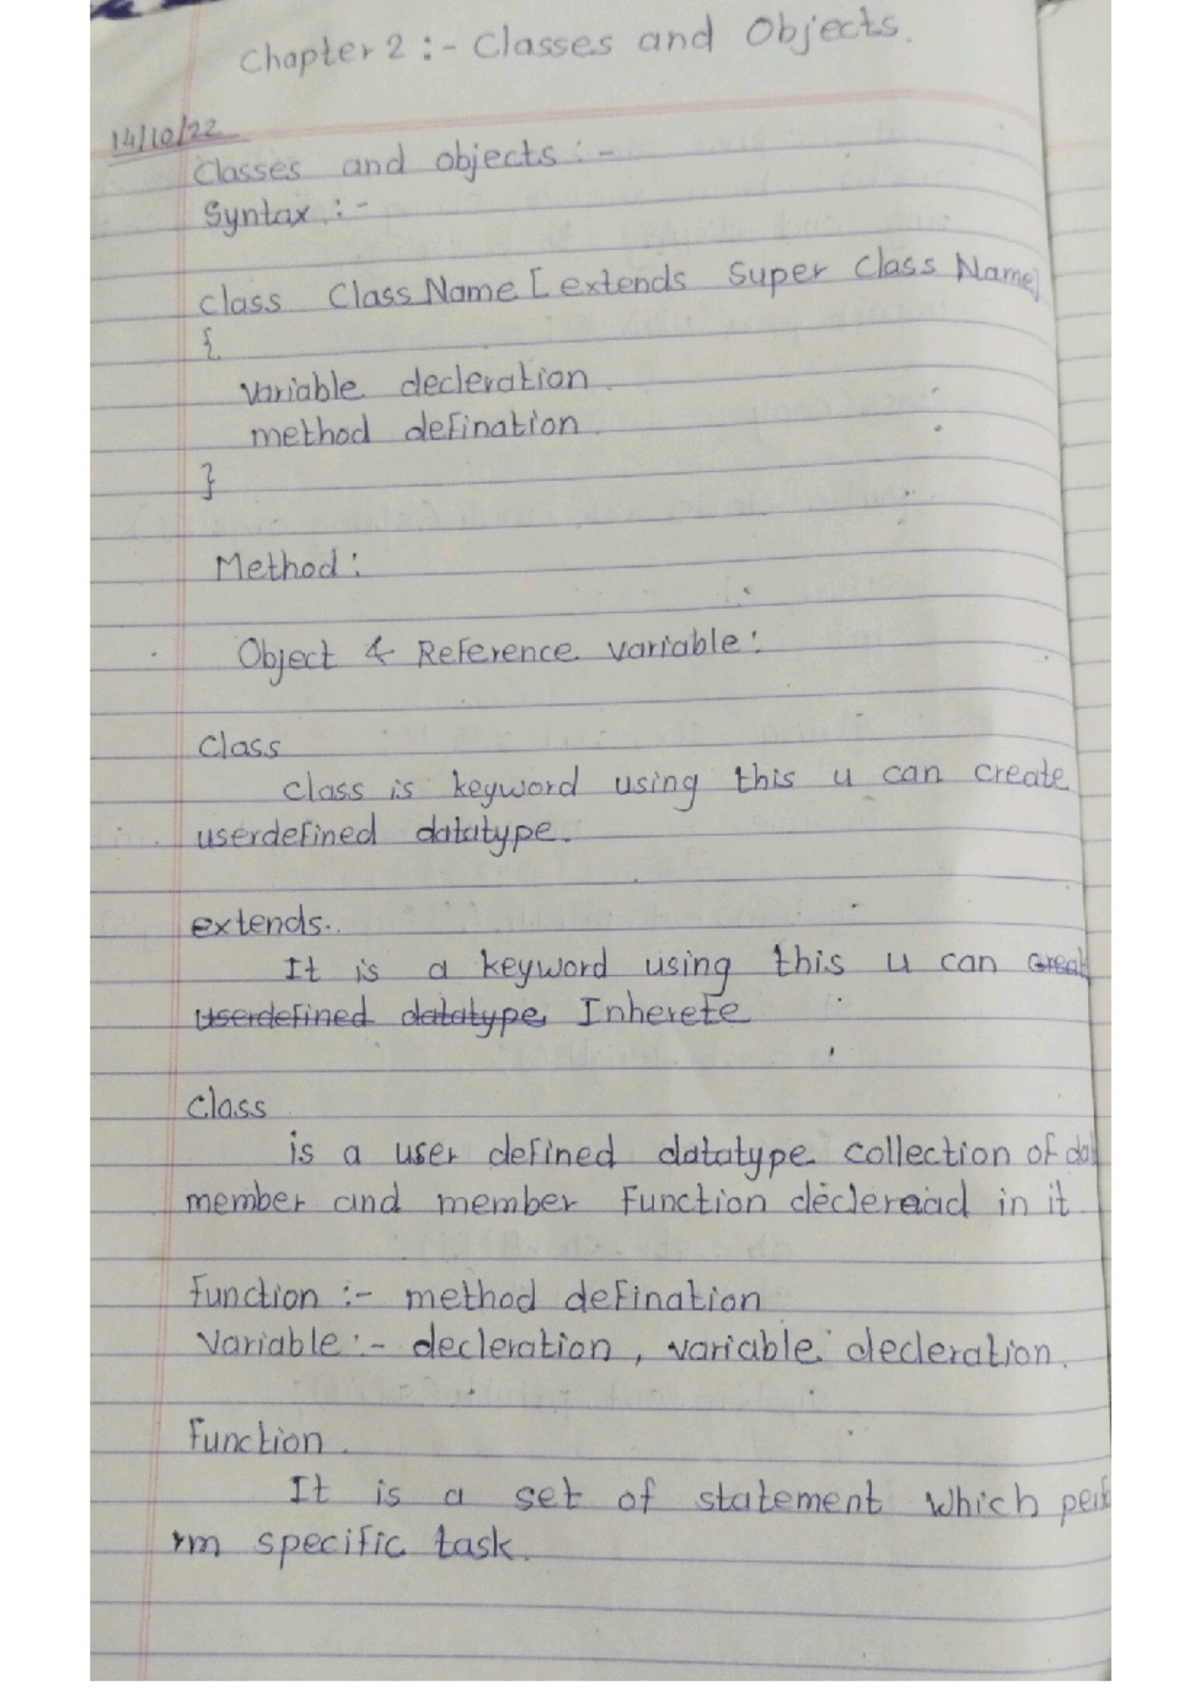 Chapter 2 :- Classes and Objects.
14/10/22
Classes and objects :-
Syntax :-
class Class Name [ extends Super Class Name]
{
variable decleration
method defination
}
Method :
Object & Reference variable :
Class
class is keyword using this u can create
userdefined datatype.
extends..
It is a keyword using this u can creat
userdefined datatype Inherete
class
is a user defined datatype collection of
member and member Function in it
Function :- method defination
Variable :- decleration , variable decleration.
Function
It is a set of statement which perfo
rm specific task.